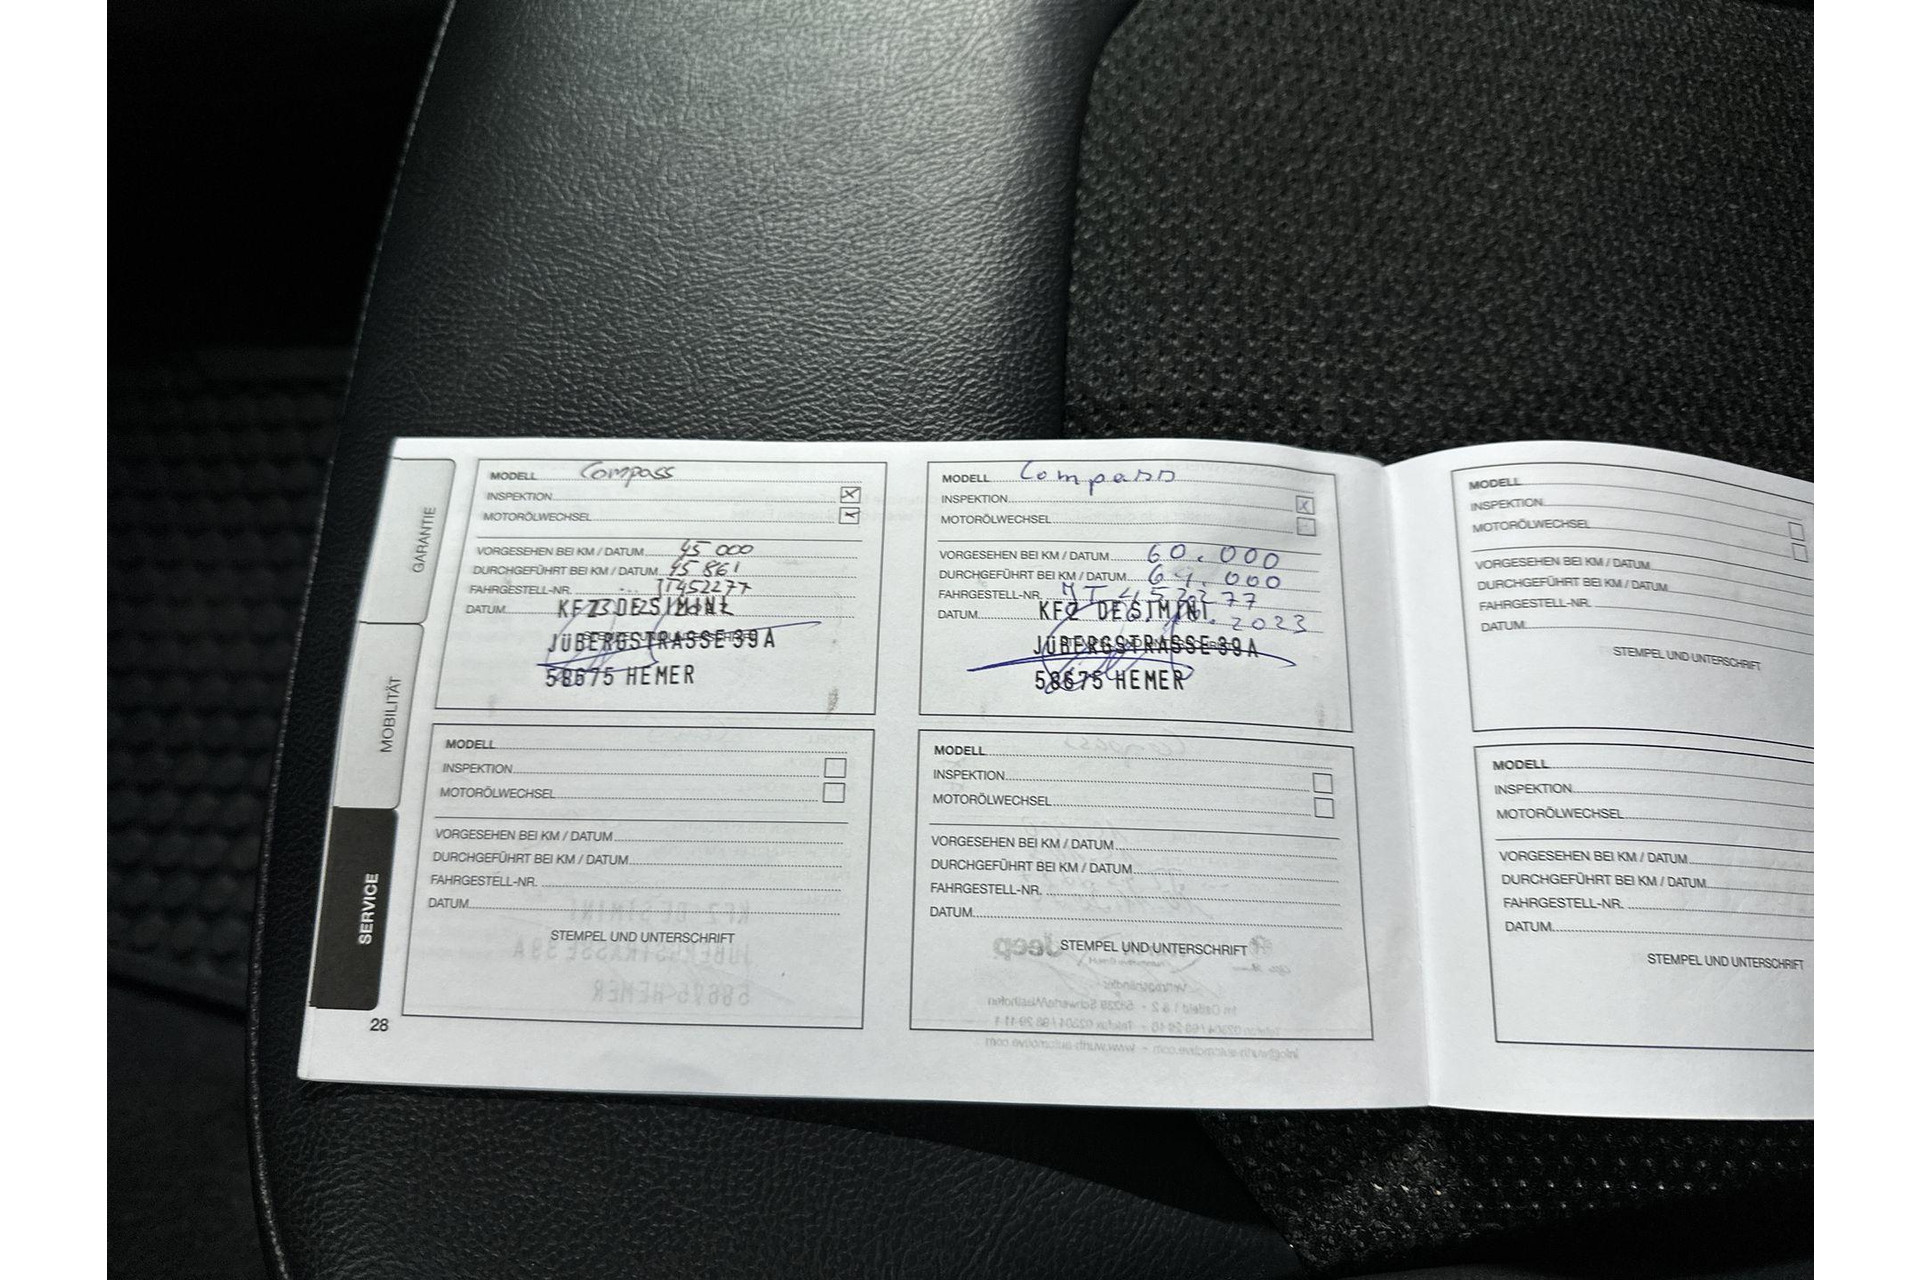 GARANTIE
MOBILITÄT
SERVICE
MODELL Compass
INSPEKTION
MOTORÖLWECHSEL
VORGESEHEN BEI KM / DATUM 45 000
DURCHGEFÜHRT BEI KM / DATUM 45 861
FAHRGESTELL-NR. JT452277
DATUM
KFZ DESIMINI
JÜBERGSTRASSE 39A
58675 HEMER
MODELL Compass
INSPEKTION
MOTORÖLWECHSEL
VORGESEHEN BEI KM / DATUM 60.000
DURCHGEFÜHRT BEI KM / DATUM
FAHRGESTELL-NR.
DATUM 2023
KFZ DESIMINI
JÜBERGSTRASSE 39A
58675 HEMER
MODELL
INSPEKTION
MOTORÖLWECHSEL
VORGESEHEN BEI KM / DATUM
DURCHGEFÜHRT BEI KM / DATUM
FAHRGESTELL-NR.
DATUM
STEMPEL UND UNTERSCHRIFT
MODELL
INSPEKTION
MOTORÖLWECHSEL
VORGESEHEN BEI KM / DATUM
DURCHGEFÜHRT BEI KM / DATUM
FAHRGESTELL-NR.
DATUM
STEMPEL UND UNTERSCHRIFT
28
MODELL
INSPEKTION
MOTORÖLWECHSEL
VORGESEHEN BEI KM / DATUM
DURCHGEFÜHRT BEI KM / DATUM
FAHRGESTELL-NR.
DATUM
STEMPEL UND UNTERSCHRIFT
MODELL
INSPEKTION
MOTORÖLWECHSEL
VORGESEHEN BEI KM / DATUM
DURCHGEFÜHRT BEI KM / DATUM
FAHRGESTELL-NR.
DATUM
STEMPEL UND UNTERSCHRIFT